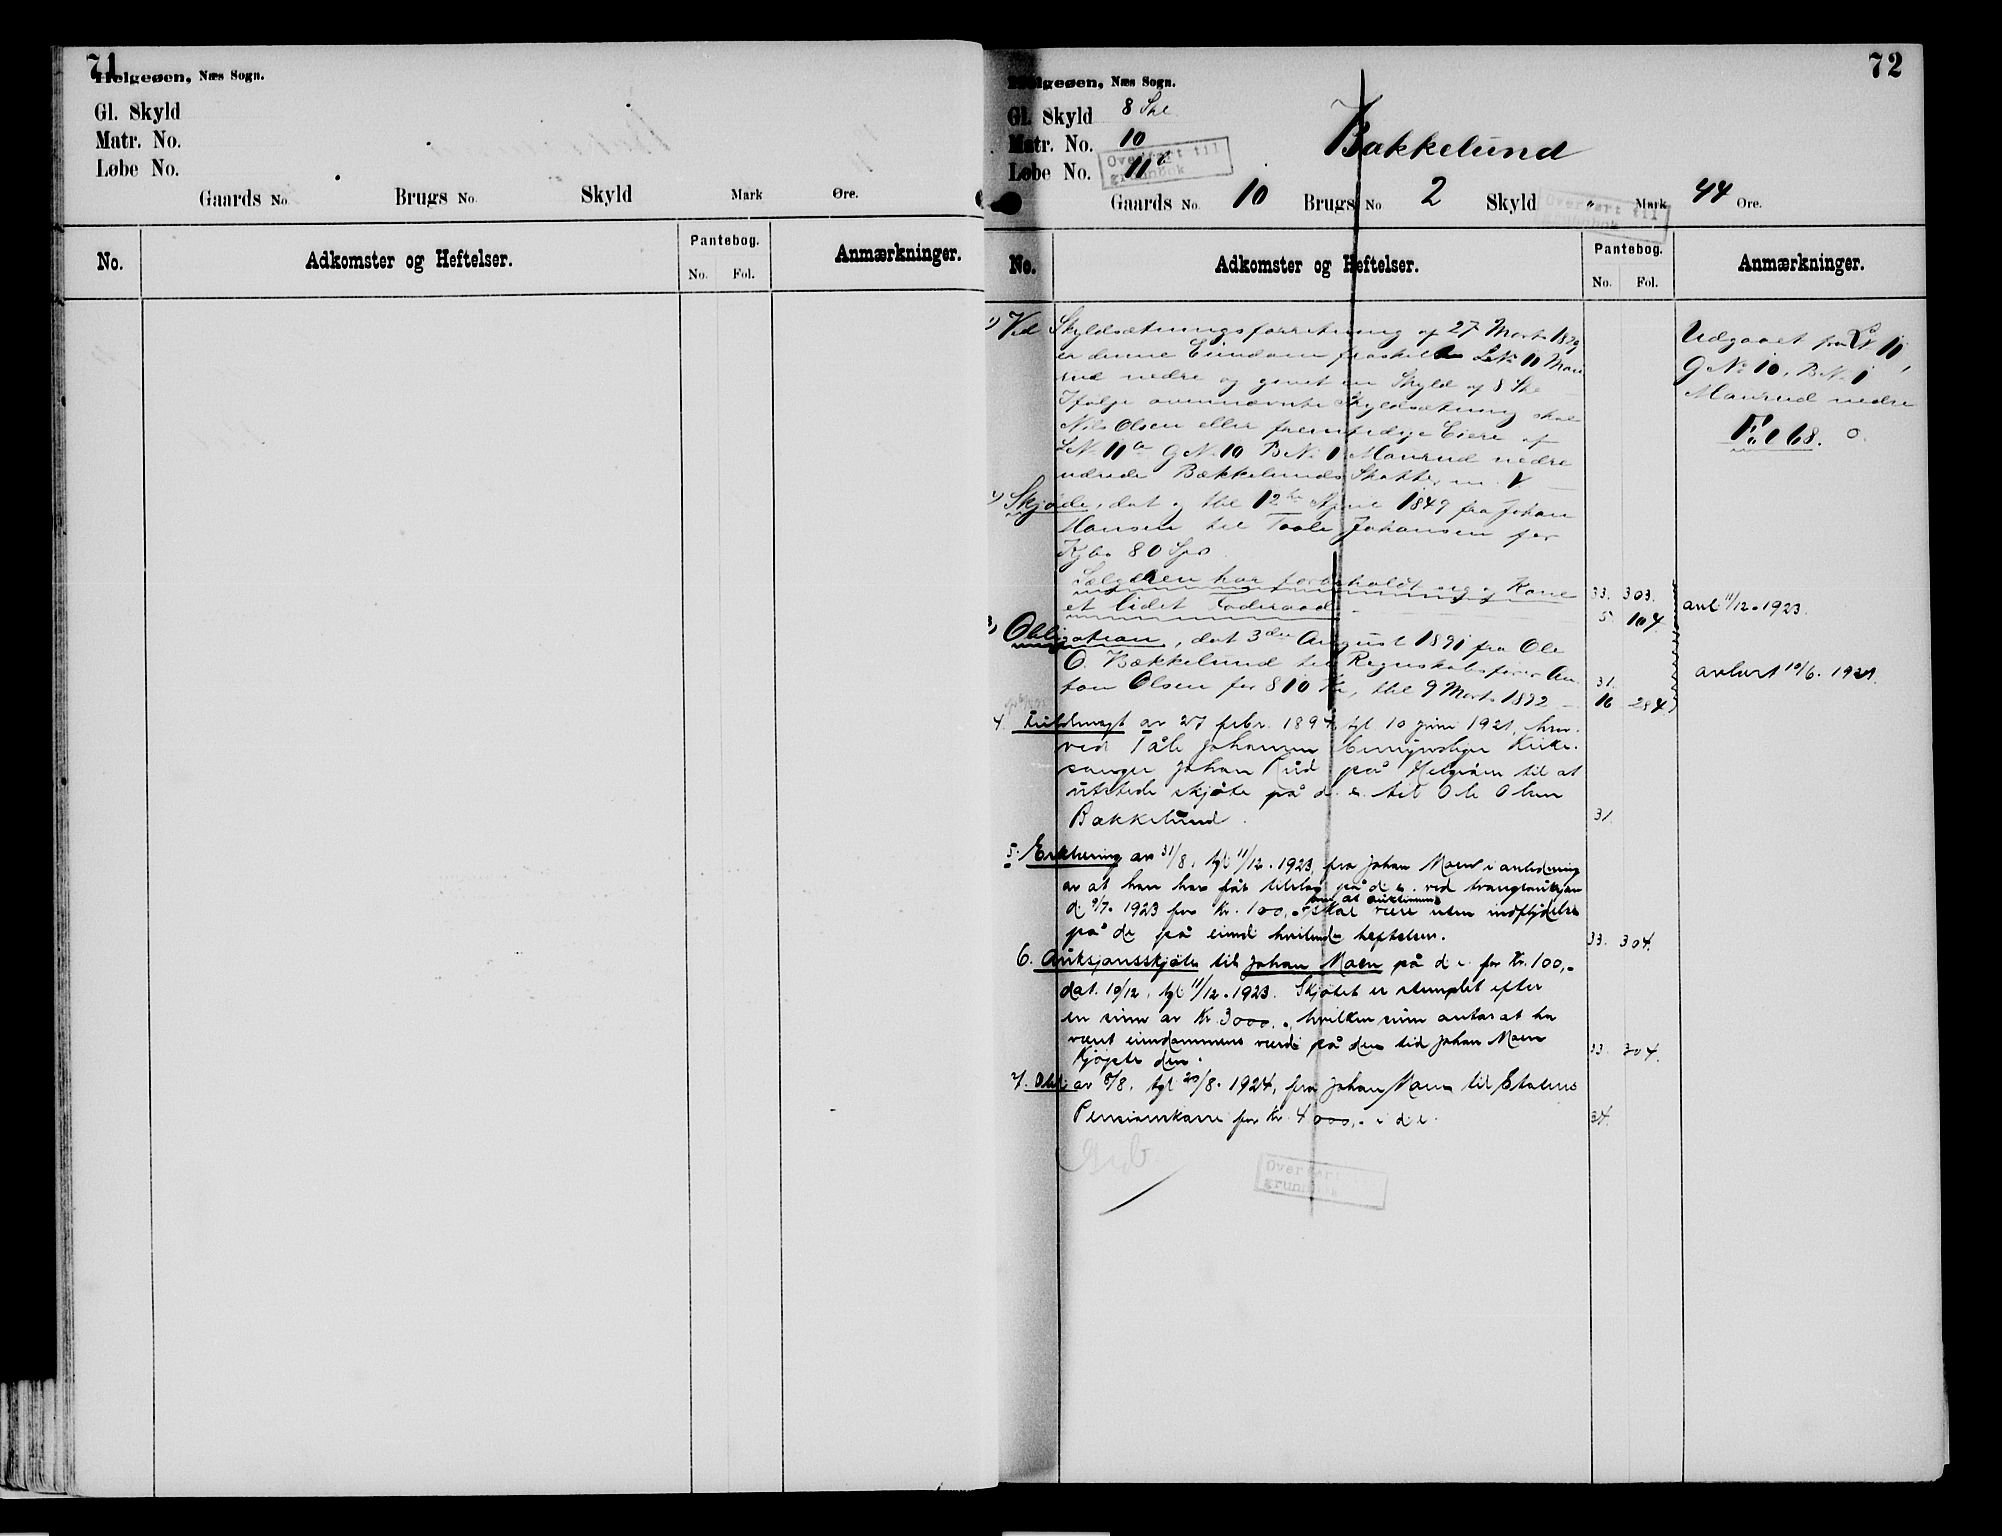 71
Helgeøen, Næs Sogn.
Gl. Skyld
Matr. No.
Løbe No.
Gaards No. Brugs No. Skyld Mark Øre.
No. Adkomster og Heftelser. Pantebog. No. Fol. Anmærkninger.
72
Helgeøen, Næs Sogn.
Gl. Skyld 8 Skl.
Matr. No. 10
Løbe No. 11b
Overført til
grunnbok
Bakkelund
Gaards No. 10 Brugs No. 2 Skyld " Mark 44 Øre.
Overført til
grunnbok
No. Adkomster og Heftelser. Pantebog. No. Fol. Anmærkninger.
1) Ved Skyldsætningsforretning af 27 Marts
er denne Eiendom fraskilt LNo 11
nedre og givet en Skyld af 8 Skl
Ifølge ovennævnte Skyldsætning skal
Nils Olsen eller fremtidige Eiere af
LNo 11a GNo 10 BNo 1 Maurud nedre
udrede Bækkelunds Skatter
Udgaaet fra LN 11
GNo 10, BNo 1
Maurud nedre
Fol 68.
2) Skjøde, dat og thl 12te April 1849 fra Johan
Hansen til Taale Johansen for
80 Spd.
Sælgeren har forbeholdt sig og Kone
et lidet Foderaad. 33. 303. 5 104. avl. 11/12. 1923.
3) Obligation, dat 3die August 1891 fra Ole
O. Bækkelund til Regnskabsfører An-
ton Olsen for 810 Kr, thl 9 Marts 1892 31. 16 284. avlyst 10/6. 1921.
4. Fuldmagt av 27 febr. 1894, tgl 10 juni 1921, hvor-
ved Tåle Johansen bemyndiger Kirke-
sanger Johan Rud på Helgøen til at
utstede skjøte på d. e. til Ole Olsen
Bækkelund. 31.
5. Erklæring av 31/8, tgl 11/12. 1923, fra Johan Moen i anledning
av at han har fåt tilslag på d. e. ved tvangsauksjon
d. 9/7. 1923 for Kr. 100,- om at auktionen skal være uten indflydelse
på de på eiend. hvilende heftelser. 33. 304.
6. Auksjonsskjøte til Johan Moen på d. e. for Kr. 100,-
dat. 10/12, tgl 11/12. 1923. Skjøtet er stemplet efter
en sum av Kr. 3000,-, hvilken sum antas at ha
været eiendommens værdi på den tid Johan Moen
kjøpte den. 33. 304.
7. Obl. av 8/8, tgl 20/8. 1924, fra Johan Moen til Statens
Pensionskasse for Kr. 4000,- i d. e. 34.
Overført til
grunnbok